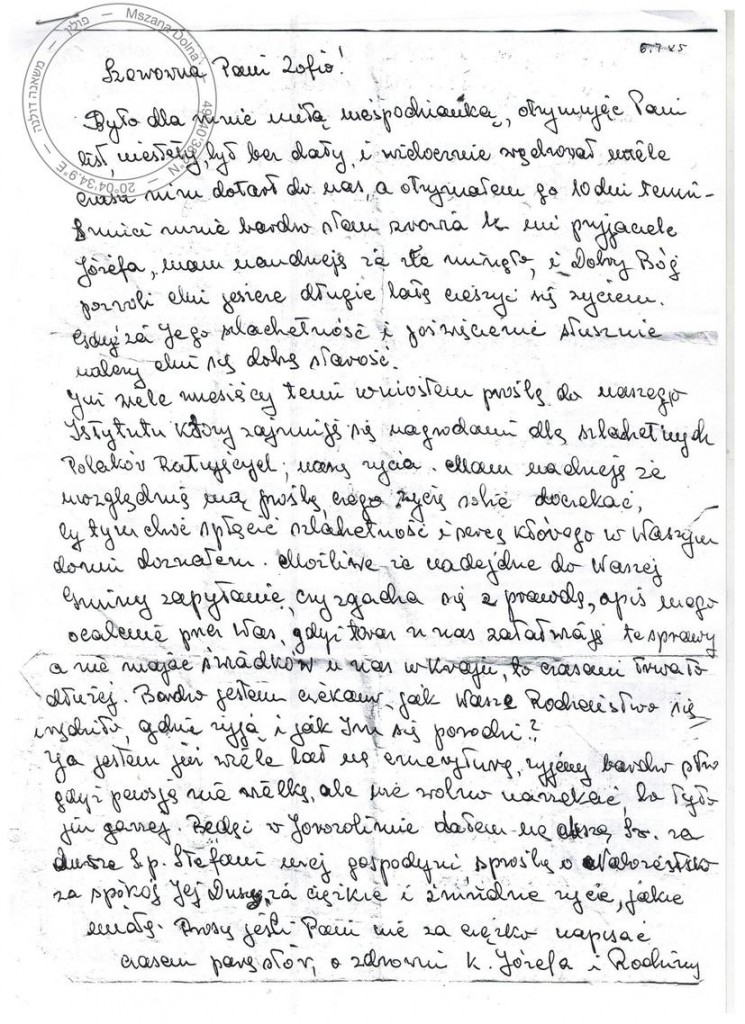 Mszana Dolna — פולין — משאנה דולנה — 20°04'34.9"E
6.7.85
Szanowna Pani Zofio!
Było dla mnie miłą niespodzianką, otrzymując Pani
list, niestety, był bez daty, i widocznie wędrował wiele
czasu nim dotarł do nas, a otrzymałem go 10 dni temu.
Smuci mnie bardzo stan zdrowia k. mi przyjaciele
Józefa, mam nandzieję że złe minęło, i Dobry Bóg
pozwoli mu jeszcze długie lata cieszyć się życiem.
Gdyż za Jego szlachetność i poświęcenie słusznie
należy mu się dobra starość.
Już wiele miesięcy temu wniosłem prośbę do naszego
Istytutu który zajmuje się nagrodami dla szlachetnych
Polaków Ratujących, nasze życia. Mam nadzieję że
uwzględnią mą prośbę, czego życzę sobie doczekać,
by tym choć spłacić szlahetność i serce którego w Waszym
domu doznałem. Możliwe że nadejdzie do Waszej
Gminy zapytanie, czy zgadza się z prawdą, opis mego
ocalenie przez Was, gdyż teraz u nas załatwiają te sprawy
a nie mając świadków u nas w Kraju, to czasami trwa to
dłużej. Bardzo jestem ciekawy, jak Wasze Rodzeństwo się
urządziło, gdzie żyją i jak Im się powodzi?
Ja jestem już wiele lat na emeryturze, żyjemy bardzo
gdyż pensja nie wielka, ale nie wolno narzekać, bo było
już gorzej. Będąc w Jerozolimie dałem na Mszę Św. za
duszę Ś.p. Stefani mej gospodyni, s prośbą o Nabożeństwo
za spokój Jej Duszy, za ciężkie i żmudne życie, jakie
miała. Proszę jeśli Pani nie za ciężko napisać
czasem parę słów, o zdrowiu k. Józefa i Rodziny